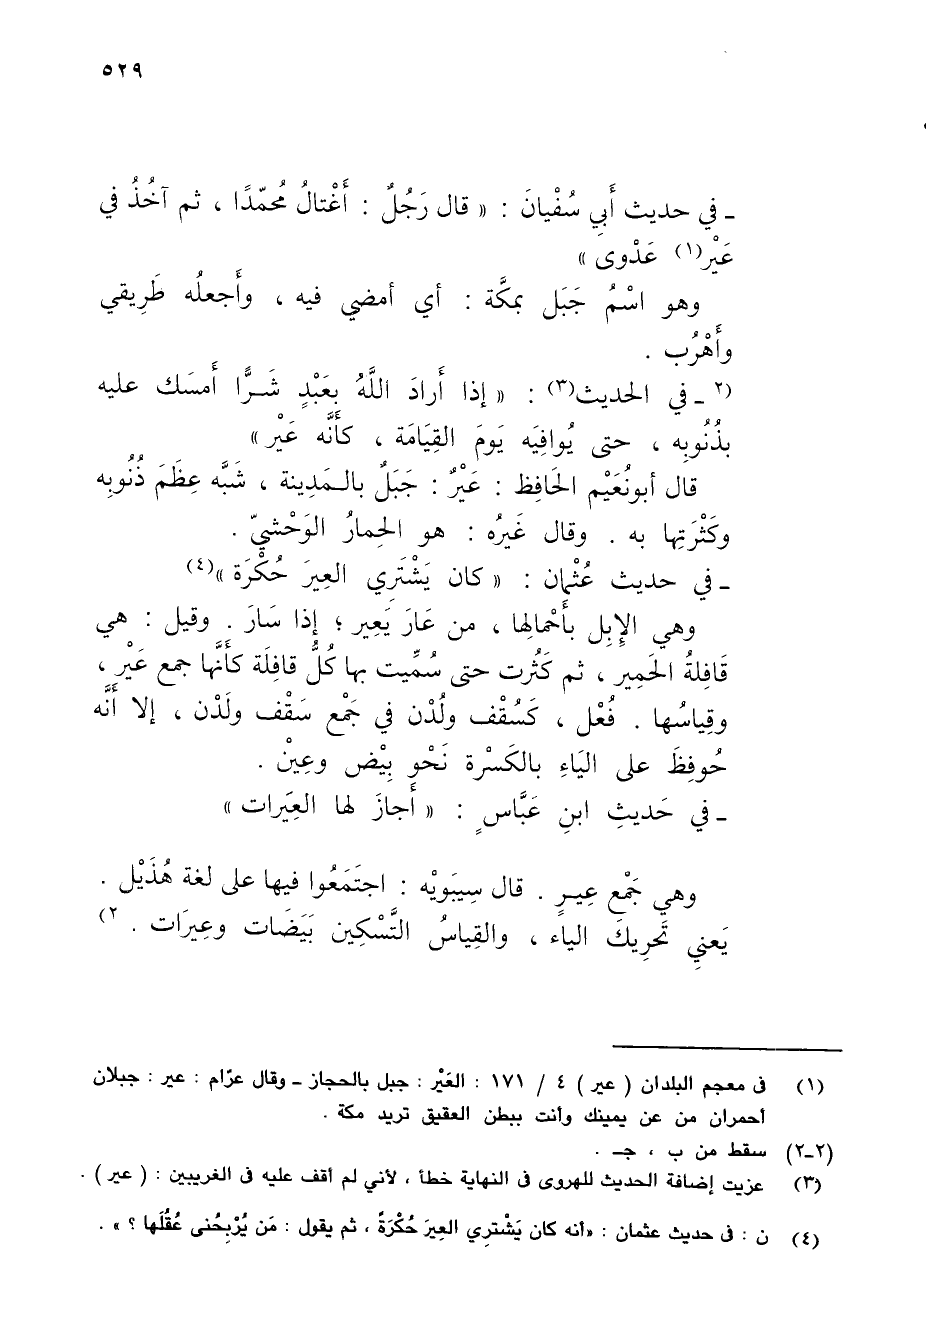 ٥٢٩
ـ في حديث أَبي سُفْيانَ : « قال رَجُلٌ : أَغْتالُ مُحمّدًا ، ثم آخُذُ في
عَيْر(١) عَدْوى »
وهو اسْمُ جَبَل بمكَّة : أي أمضي فيه ، وأَجعلُه طَرِيقي
وأَهْرُب .
(٢ ـ في الحديث(٣) : « إذا أَرادَ اللَّهُ بِعَبْدٍ شَرًّا أَمسَك عليه
بذُنُوبِه ، حتى يُوافِيَه يَومَ القِيَامَة ، كأنَّه عَيْر »
قال أبونُعَيْم الحَافِظ : عَيْرٌ : جَبَلٌ بالمَدِينة ، شَبَّه عِظَمَ ذُنُوبِه
وكَثْرَتِها به . وقال غَيرُه : هو الحِمارُ الوَحْشيّ .
ـ في حديث عُثْمان : « كان يَشْتَري العِيرَ حُكْرَة »(٤)
وهي الإِبِل بأَحْمالِها ، من عَارَ يَعِير ؛ إذا سَارَ . وقيل : هي
قَافِلةُ الحَمِير ، ثم كَثُرت حتى سُمِّيت بها كُلُّ قافِلَة كأنَّها جمع عَيْر ،
وقِياسُها . فُعْل ، كَسُقْف ولُدْن في جَمْع سَقْف ولَدْن ، إلا أنَّه
حُوفِظَ على اليَاءِ بالكَسْرة نَحْو بِيْض وعِيْن .
ـ في حَديثِ ابنِ عَبَّاسٍ : « أَجازَ لها العِيَرات »
وهي جَمْع عِيرٍ . قال سِيبَوَيْه : اجتَمَعُوا فيها على لغة هُذَيْل .
يَعنِي تَحرِيكَ الياء ، والقِياسُ التَّسْكِين بَيَضَات وعِيرَات . ٢)
(١) فى معجم البلدان ( عير ) ٤ / ١٧١ : العَيْر : جبل بالحجاز ـ وقال عرّام : عير : جبلان
أحمران من عن يمينك وأنت ببطن العقيق تريد مكة .
(٢-٢) سقط من ب ، جـ .
(٣) عزيت إضافة الحديث للهروى فى النهاية خطأ ، لأني لم أقف عليه فى الغريبين : ( عير ) .
(٤) ن : فى حديث عثمان : «أنه كان يَشْتَرِي العِيرَ حُكْرَةً ، ثم يقول : مَن يُرْبِحُنى عُقُلَها ؟ » .